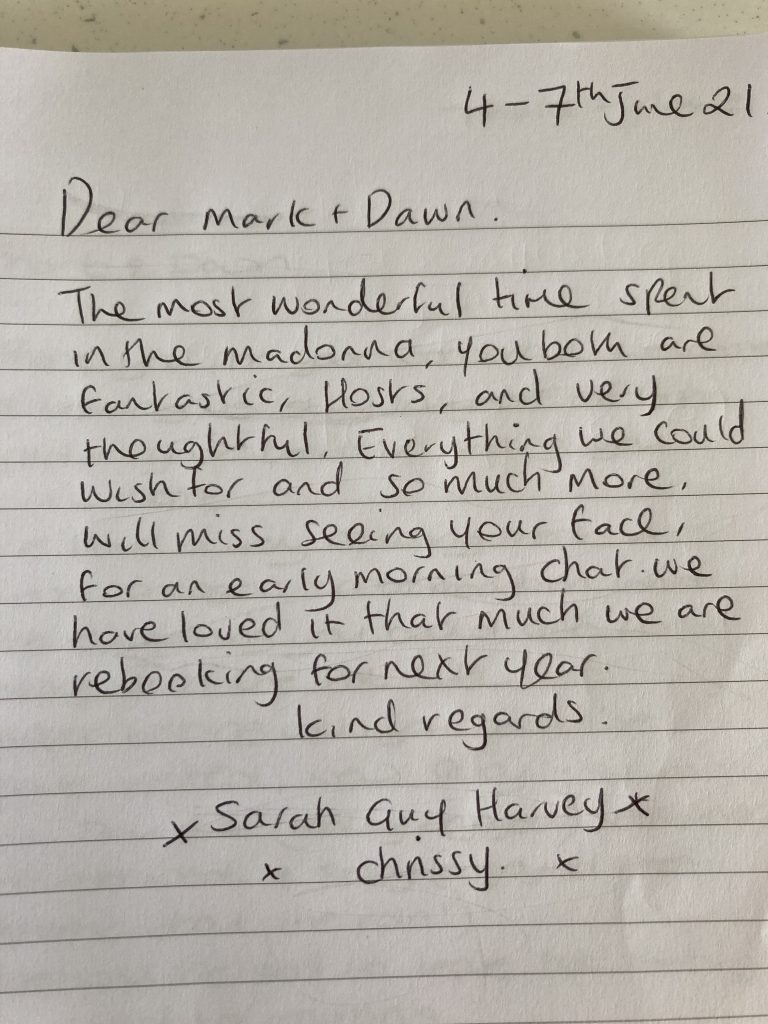 4-7th June 21
Dear Mark + Dawn.
The most wonderful time spent
in the madonna, you both are
fantastic, Hosts, and very
thoughtful. Everything we could
wish for and so much more.
Will miss seeing your face,
for an early morning chat. we
have loved it that much we are
rebooking for next year.
kind regards.
x Sarah Guy Harvey x
x chrissy. x